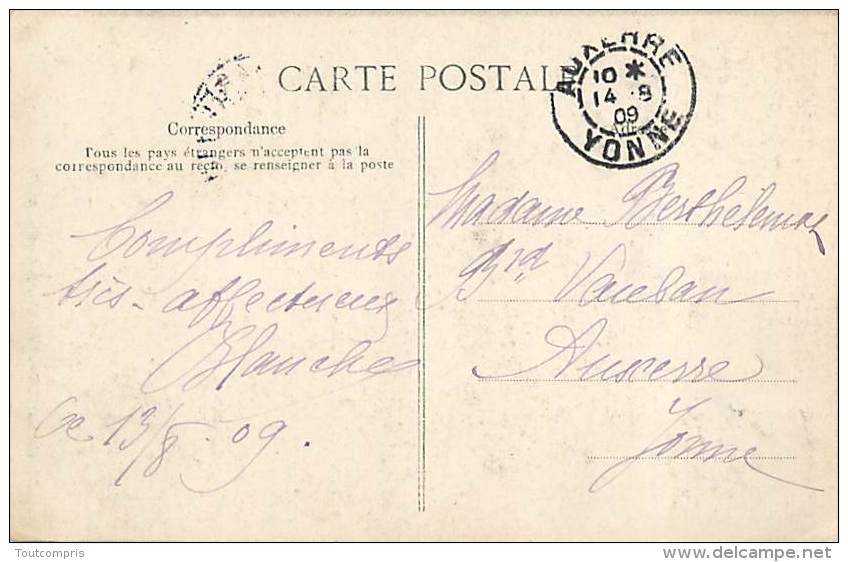 CARTE POSTALE
AUXERRE
10 *
14 - 8
09
YONNE
Correspondance
Tous les pays étrangers n'acceptent pas la
correspondance au recto, se renseigner à la poste
Compliments
très-affectueux
Blanche
Ce 13/8 09.
Madame
Bvd Vauban
Auxerre
Yonne
Toutcompris
www.delcampe.net